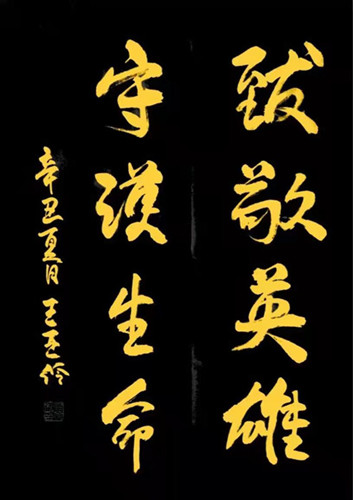 致敬英雄
守護生命
辛丑夏月 王玉伶